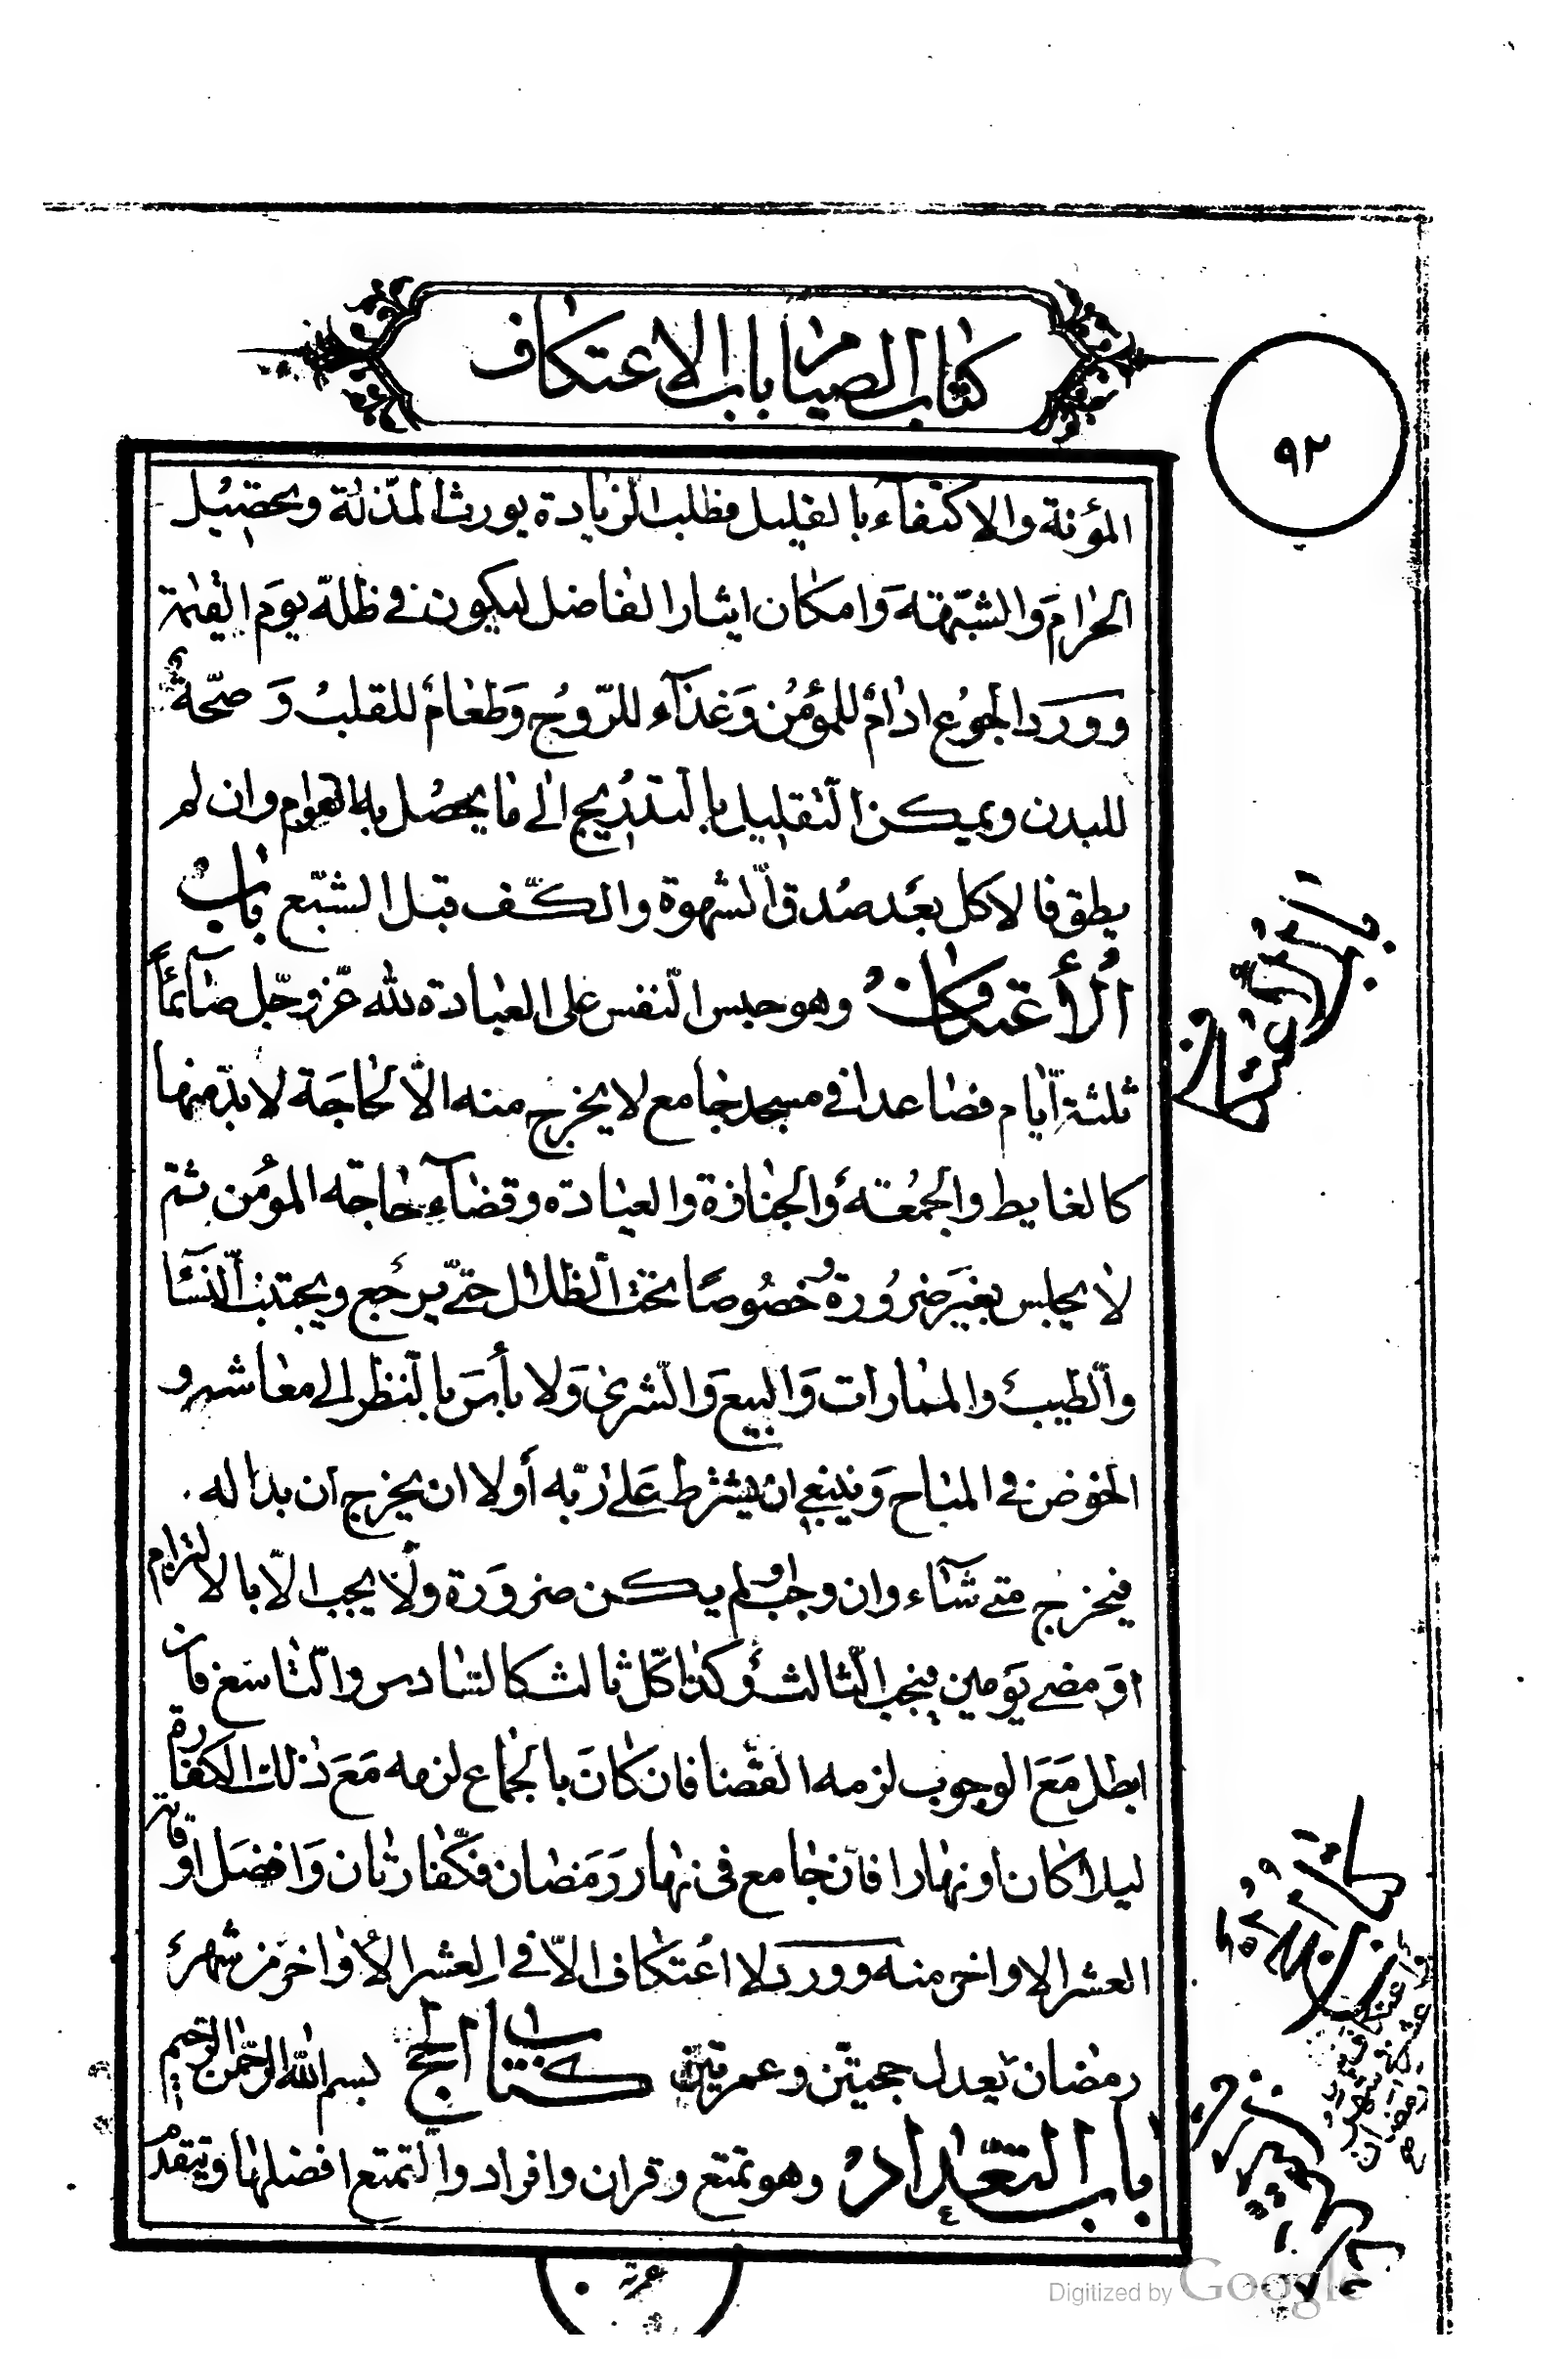 كتاب الصيام باب الاعتكاف
٩٢
المؤنة والاكتفاء بالقليل فطلب الزيادة يورث المذلة ويحصيل
الحرام والشبهة وامكان ايثار الفاضل ليكون في ظله يوم القيمة
وورد الجوع ادام للمؤمن وغذاء للروح وطعام للقلب وصحة
للبدن ويمكن التقليل بالتدريج الى ما يحصل به القوام وان لم
يطق فالاكل بعد صدق الشهوة والكف قبل الشبع باب
الأعتكاف وهو حبس النفس على العبادة لله عز وجل صائماً
ثلثة أيام فصاعدا في مسجد جامع لا يخرج منه الا لحاجة لا بد منها
كالغايط والجمعة والجنازة والعيادة وقضاء حاجة المؤمن ثم
لا يجلس بغير ضرورة خصوصا تحت الظلال حتى يرجع ويجتنب النساء
والطيب والممارات والبيع والشرى ولا بأس بالنظر الى معاشه و
الخوض في المباح وينبغي ان يشترط على ربه أولا ان يخرج ان بدا له
فيخرج متى شاء وان وجب او لم يكن ضرورة ولا يجب الا بالالتزام
او مضى يومين فيجب الثالث وكذا كل ثالث كالسادس والتاسع فان
ابطل مع الوجوب لزمه القضا فان كان بالجماع لزمه مع ذلك الكفارة
ليلا كان او نهارا فان جامع في نهار رمضان فكفارتان وافضل اوقاته
العشر الاواخر منه وورد لا اعتكاف الا في العشر الأواخر من شهر
رمضان يعدل حجتين وعمرتين كتاب الحج بسم الله الرحمن الرحيم
باب التعداد وهو تمتع وقران وافراد والتمتع افضلها ويتقدم
عمرته
Digitized by Google